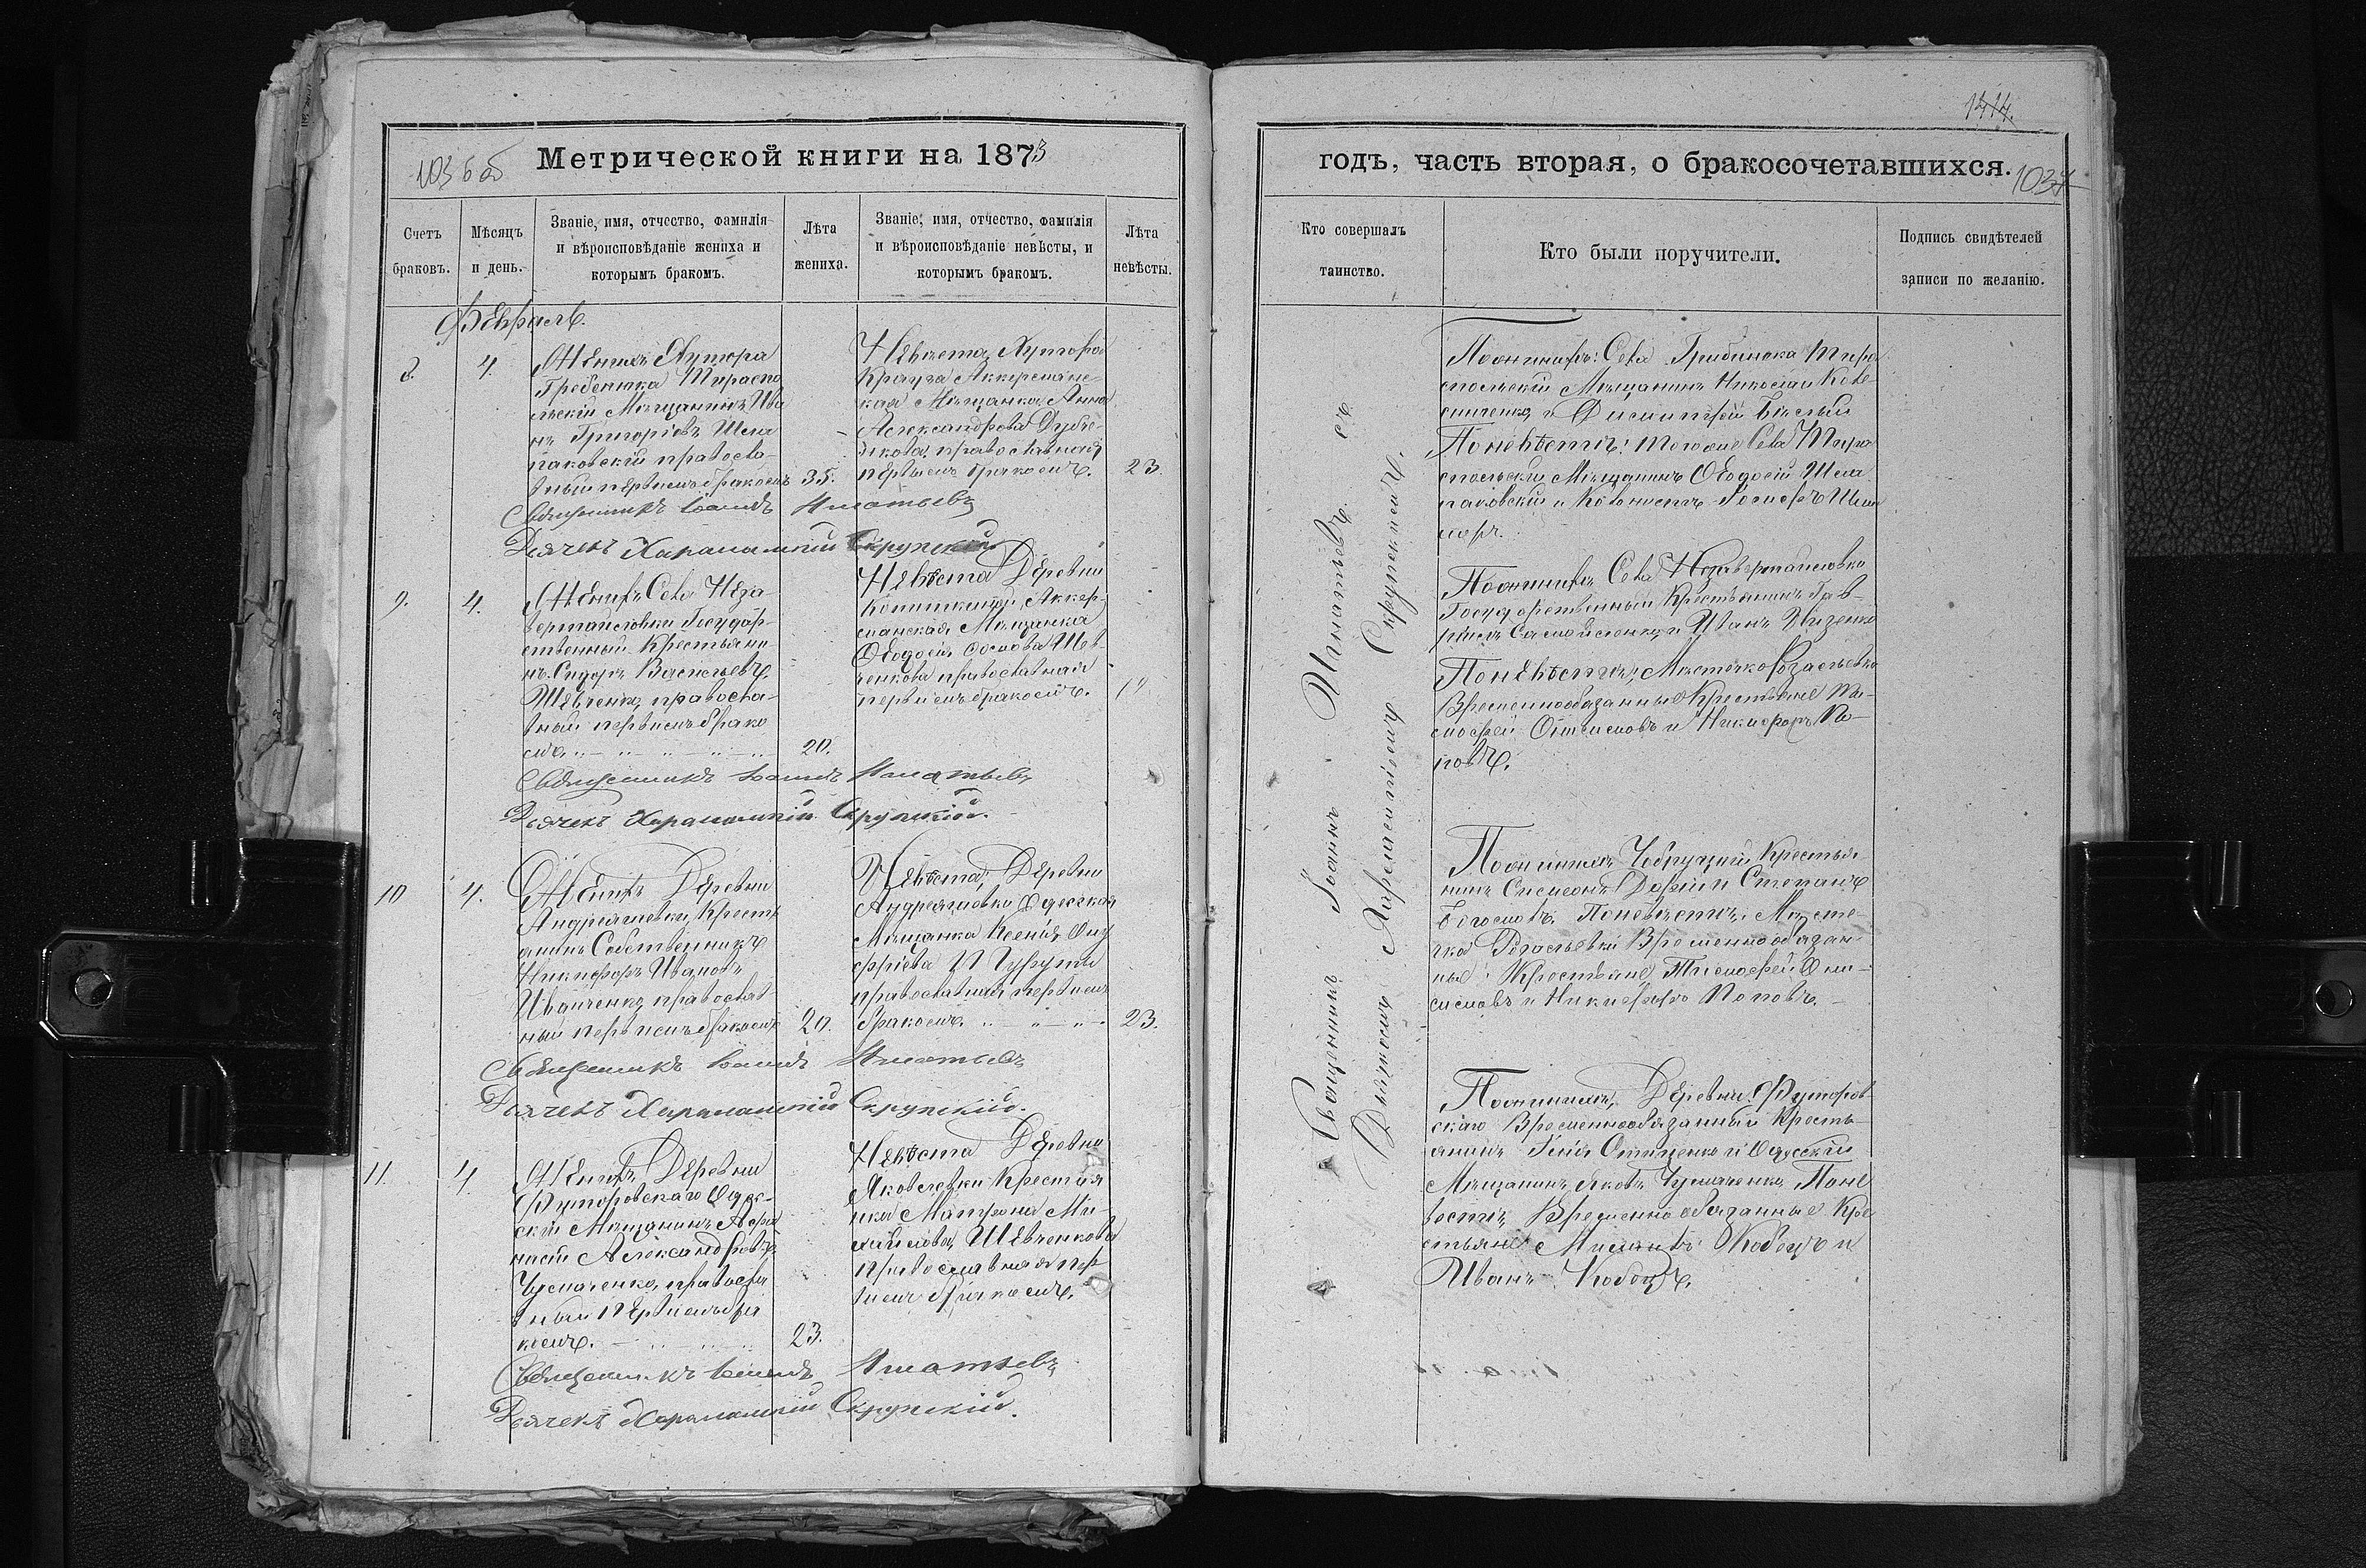 103 б об
Метрической книги на 1873
Счетъ браковъ.
Мѣсяцъ и день.
Званіе, имя, отчество, фамилія
и вѣроисповѣданіе жениха и
которымъ бракомъ.
Лѣта жениха.
Званіе, имя, отчество, фамилія
и вѣроисповѣданіе невѣсты, и
которымъ бракомъ.
Лѣта невѣсты.
Февраль.
8.
4.
Женихъ Хутора
Гребенюка Тираспо
льскій Мѣщанинъ Ива
нъ Григоріевъ Шела
паковскій правосла-
вный первымъ бракомъ
35.
Невѣста, Хутора
Крауза Аккерманс-
кая Мѣщанка Анна
Александрова
православная
первымъ бракомъ.
23.
Священникъ Іоаннъ Игнатьевъ
Дьячекъ Харалампій Скрупскій
9.
4.
Женихъ Села Неза-
вертайловки Государ-
ственный Крестьяни
нъ Сидоръ Васильевъ
Шевченко, правосла-
вный первымъ брако
мъ
20.
Невѣста Деревни
Аккер-
манская Мѣщанка
Ѳеодосія Шев-
ченкова православная
первымъ бракомъ.
Священникъ Іоаннъ Игнатьевъ
Дьячекъ Харалампій Скрупскій.
10
4.
Женихъ Деревни
Андріяшевки, Кресть
янинъ Собственникъ
Никифоръ Ивановъ
Иванченко, православ
ный первымъ бракомъ
20.
Невѣста, Деревни
Андреяшевки Одесская
Мѣщанка Ксенія Ону
фріева
православная первымъ
бракомъ.
23.
Священникъ Іоаннъ Игнатьевъ
Дьячекъ Харалампій Скрупскій.
11.
4.
Женихъ, Деревни
Футоровскаго Одес-
скій Мѣщанинъ Афа
насій Александровъ
Чумаченко, правосла
вный первымъ бра
комъ.
23.
Невѣста Деревни
Яковлевки Крестья
нка Матрона Ми-
хайлова Шевченкова
православная пер
вымъ бракомъ.
Священникъ Іоаннъ Игнатьевъ
Дьячекъ Харалампій Скрупскій.
1414.
годъ, часть вторая, о бракосочетавшихся.
1037
Кто совершалъ таинство.
Кто были поручители.
Подпись свидѣтелей
записи по желанію.
Священникъ Іоаннъ Игнатьевъ съ
Дьячкомъ Харалампіемъ Скрупскимъ.
По женихѣ: Села Гребинюка Тира
спольскій Мѣщанинъ Николай Кове
и Димитрій Бѣлый
По невѣстѣ: того же Села Тира
спольскій Мѣщанинъ Ѳеодосій Шела
паковскій и Колонистъ
По женихѣ Села Незавертайловки
Государственный Крестьянинъ Гав-
ріилъ Самойленко и Иванъ
По невѣстѣ: Мѣстечко Розальевка
Временнообязанные Крестьяне Ти-
мофей Онисимовъ и Никифоръ По-
повъ.
По женихѣ Чобручій Крестья-
нинъ Симеонъ и Степанъ
По невѣстѣ: Мѣсте-
чка Розальевки Временнообязан-
ные Крестьяне Тимофей Они-
симовъ и Никифоръ Поповъ.
По женихѣ, Деревни Футоров-
скаго Временнообязанный Кресть-
янинъ и Одесскій
Мѣщанинъ Яковъ Чумаченко. По не
вѣстѣ, Временнообязанные Кре
стьяне Кобецъ и
Иванъ Кобецъ.